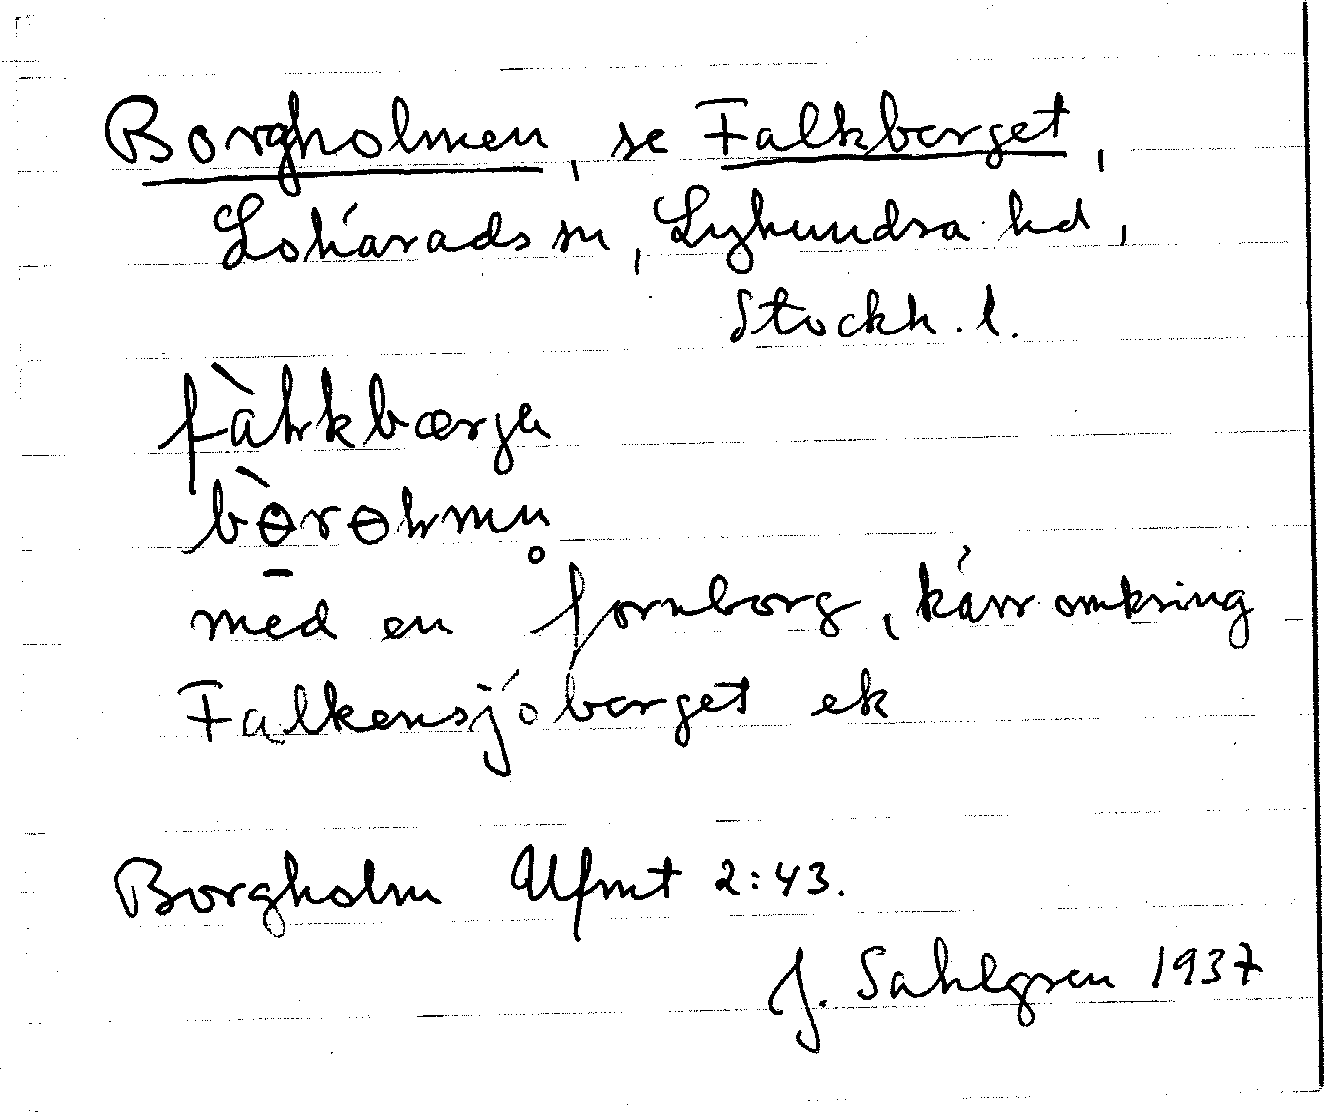 Borgholmen, se Falkberget,
Lohärads sn, Lyhundra hd,
Stockh. l.
fàłkbærjə
bòrołmn̥
med en fornborg, kärr omkring
Falkensjöberget ek
Borgholm Ufmt 2:43.
J. Sahlgren 1937